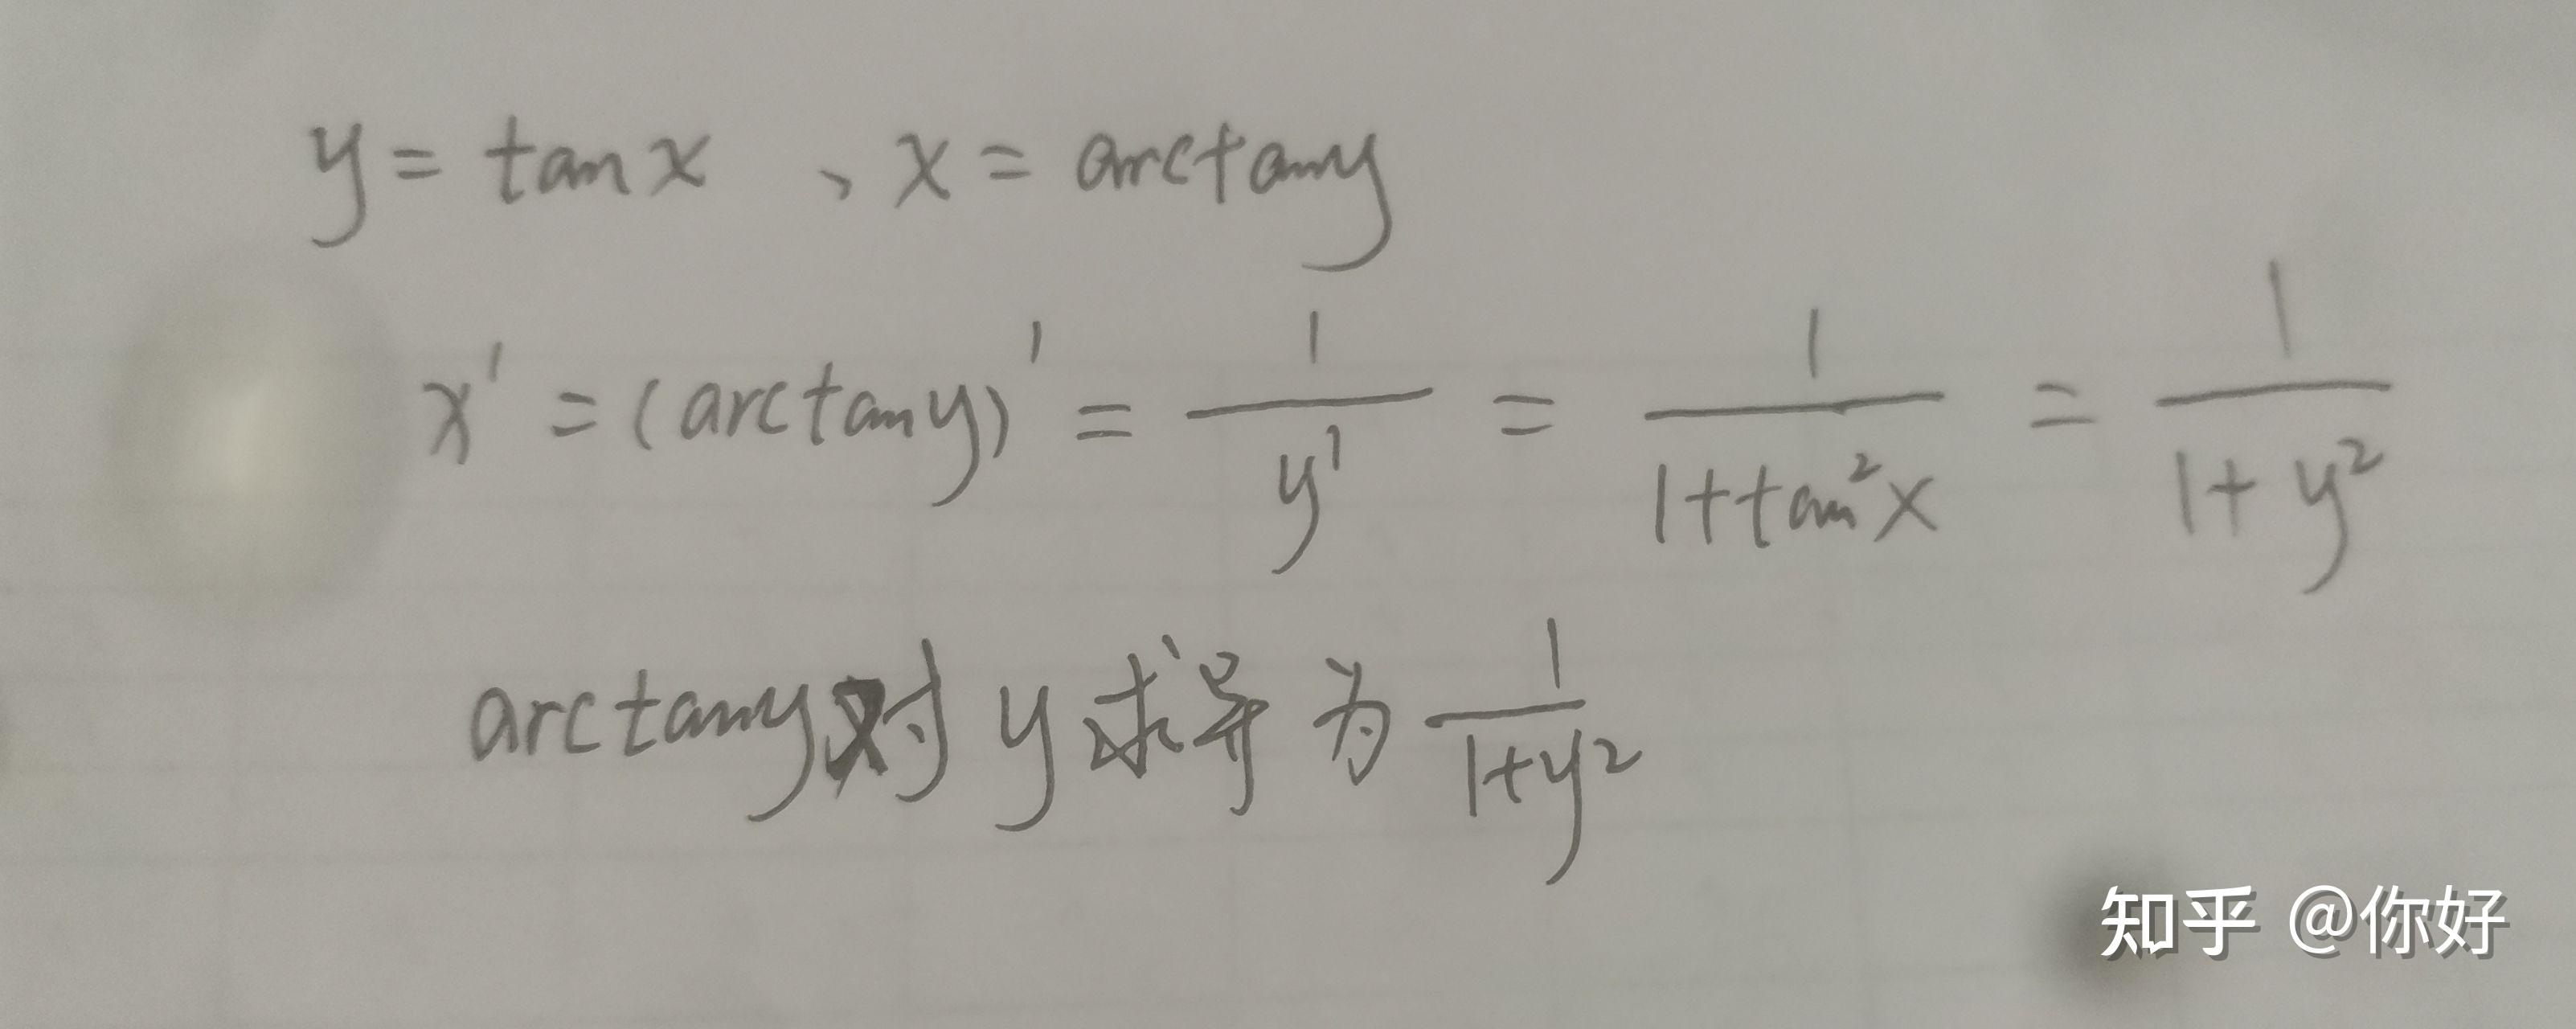 y = tan x 、 x = arctan y
x' = (arctan y)' = 1/y' = 1/(1+tan²x) = 1/(1+y²)
arctan y 对 y 求导为 1/(1+y²)
知乎 @你好